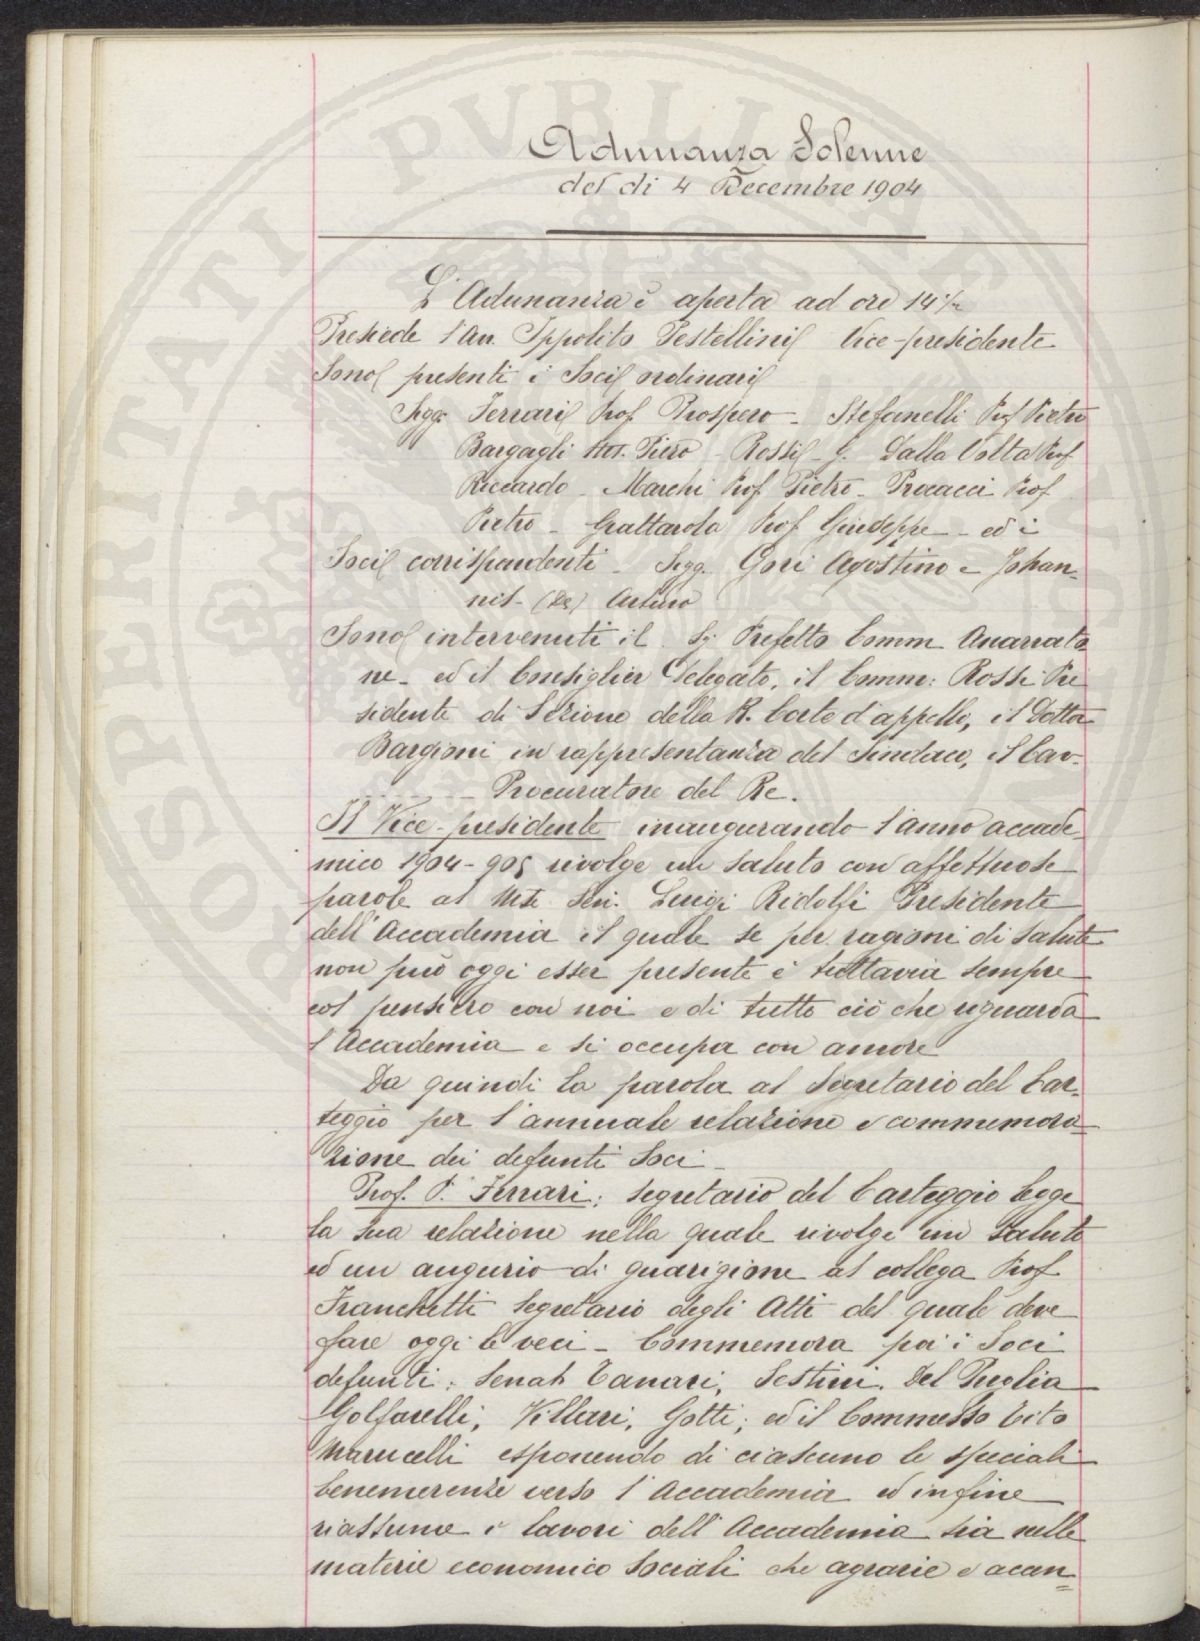 Adunanza Solenne
del dì 4 Decembre 1904
L'Adunanza è aperta ad ore 14 ½
Presiede l'Avv. Ippolito Pestellini Vice-presidente
Sono presenti i Soci ordinari
Sigg. Ferrari Prof. Prospero - Stefanelli Prof Pietro
Bargagli Piero - Rossi - G. Dalla Volta Prof
Riccardo - Marchi Prof. Pietro - Procacci Prof
Pietro - Grattarola Prof Giuseppe - ed i
Soci corrispondenti - Sigg. Gori Agostino e Johan-
nis - (De) Arturo
Sono intervenuti il Sig. Prefetto Comm. Anarrato
ne - ed il Consiglier Delegato, il Comm: Rossi Pre
sidente di Sezione della R. Corte d'appello, il Dottor
Bargioni in rappresentanza del Sindaco, il Cav.
Procuratore del Re.
Il Vice-presidente inaugurando l'anno accade
mico 1904-905 rivolge un saluto con affettuose
parole al Mse Sen. Luigi Ridolfi Presidente
dell'Accademia il quale se per ragioni di salute
non può oggi esser presente è tuttavia sempre
col pensiero con noi e di tutto ciò che riguarda
l'Accademia e si occupa con amore
Da quindi la parola al Segretario del Car-
teggio per l'annuale relazione e commemora-
zione dei defunti Soci -
Prof. P. Ferrari: segretario del Carteggio legge
la sua relazione nella quale rivolge un saluto
ed un augurio di guarigione al collega Prof
Franchetti Segretario degli Atti del quale deve
fare oggi le veci - Commemora poi i Soci
defunti: Senat Tanari, Sestini, Del Puglia
Golfarelli, Villari, Gotti; ed il Commesso Tito
Marucelli esponendo di ciascuno le speciali
benemerenze verso l'Accademia ed infine
riassume i lavori dell'Accademia sia nelle
materie economico sociali che agrarie e accen=